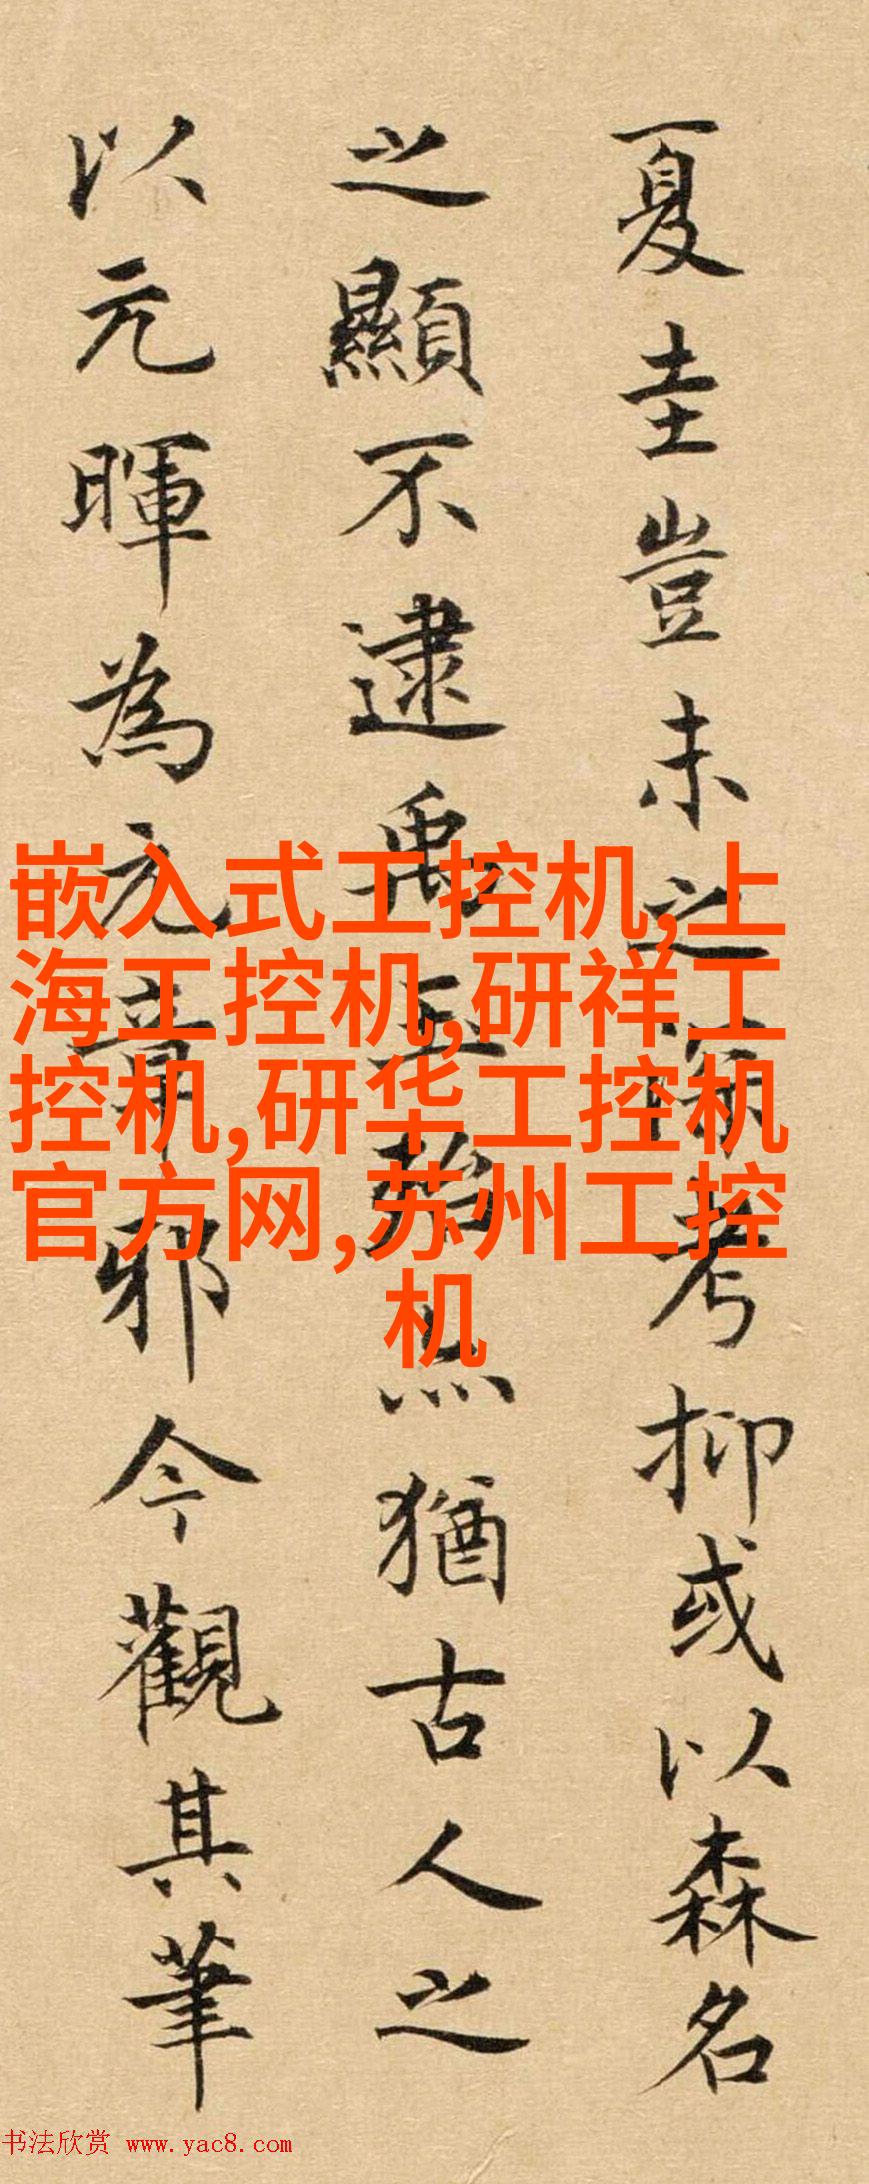 夏圭豈未之深考抑或以森名
之顯不逮禹玉勢然猶古人之
以元暉為元章邪今觀其筆
嵌入式工控机,上
海工控机,研祥工
控机,研华工控机
官方网,苏州工控
机
书法欣赏 www.yac8.com